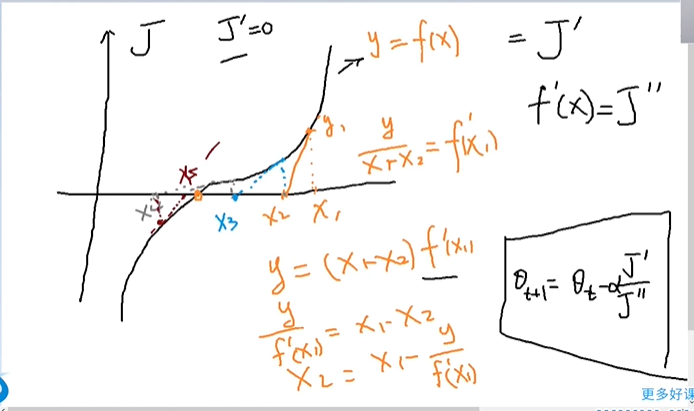 J J'=0
y=f(x) = J'
f'(x)=J''
y₁
y/(x₁-x₂)=f'(x₁)
x₅
x₄ x₃ x₂ x₁
y=(x₁-x₂)f'(x₁)
y/f'(x₁)=x₁-x₂
x₂=x₁-y/f'(x₁)
θₜ₊₁=θₜ-αJ'/J''
更多好课